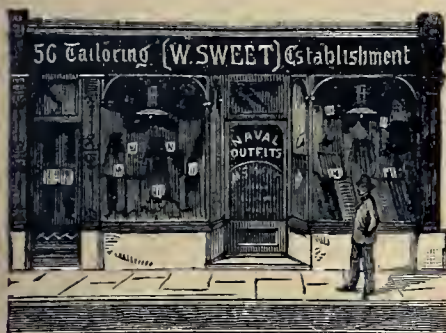 56 Tailoring (W. SWEET) Establishment
NAVAL
OUTFITS